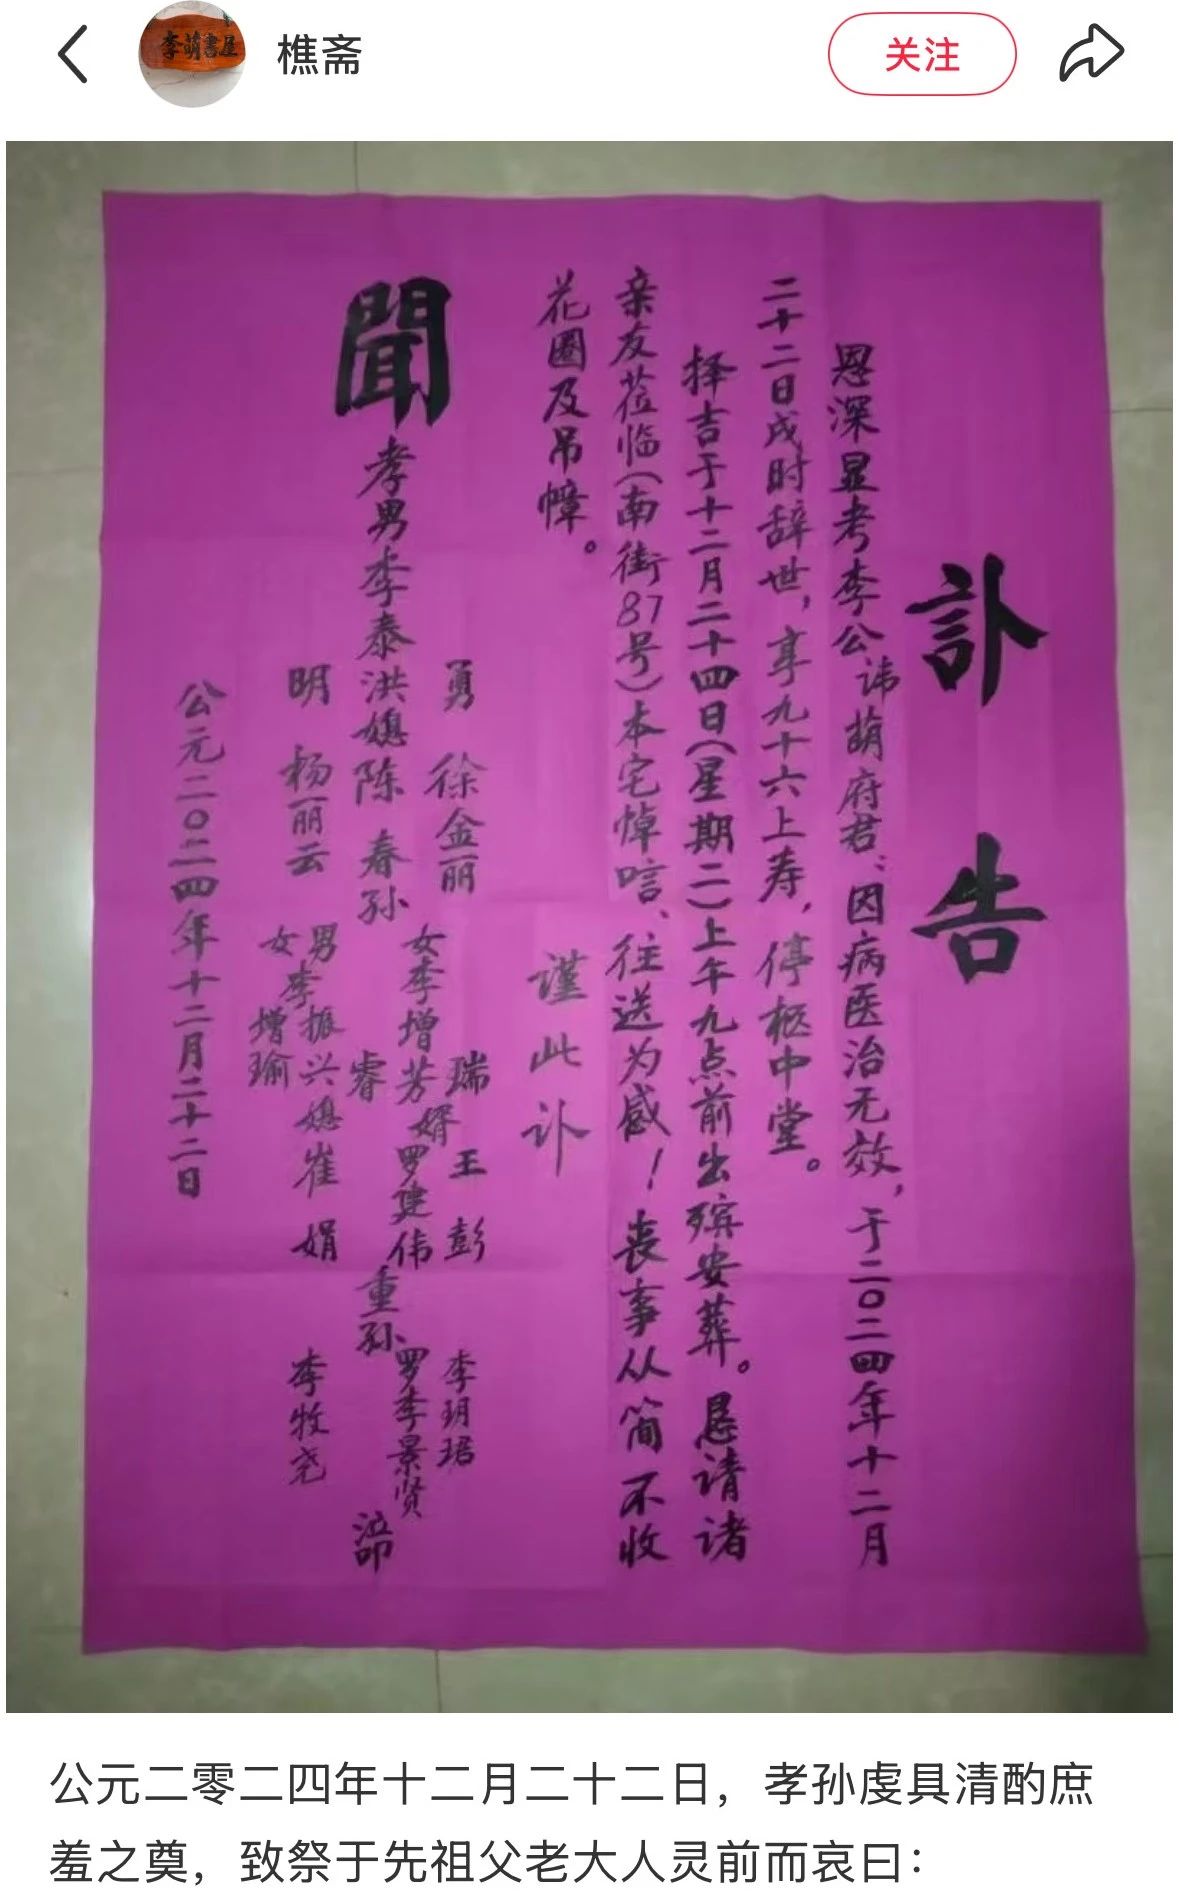 李萌書屋
樵斋
关注
訃告
恩深显考李公讳萠府君：因病医治无效，于二〇二四年十二月
二十二日戌时辞世，享九十六上寿，停柩中堂。
择吉于十二月二十四日（星期二）上午九点前出殡安葬。恳请诸
亲友莅临（南街87号）本宅悼唁、往送为感！丧事从简不收
花圈及吊幛。
谨此讣
聞
勇 徐金丽
孝男李泰洪媳陈春
明 杨丽云
孙
瑞 王彭
女李增芳婿罗建伟
睿
男李振兴媳崔娟
女 增瑜
重孙
李玥珺
罗李景贤
李牧尧
泣叩
公元二〇二四年十二月二十二日
公元二零二四年十二月二十二日，孝孙虔具清酌庶
羞之奠，致祭于先祖父老大人灵前而哀曰：